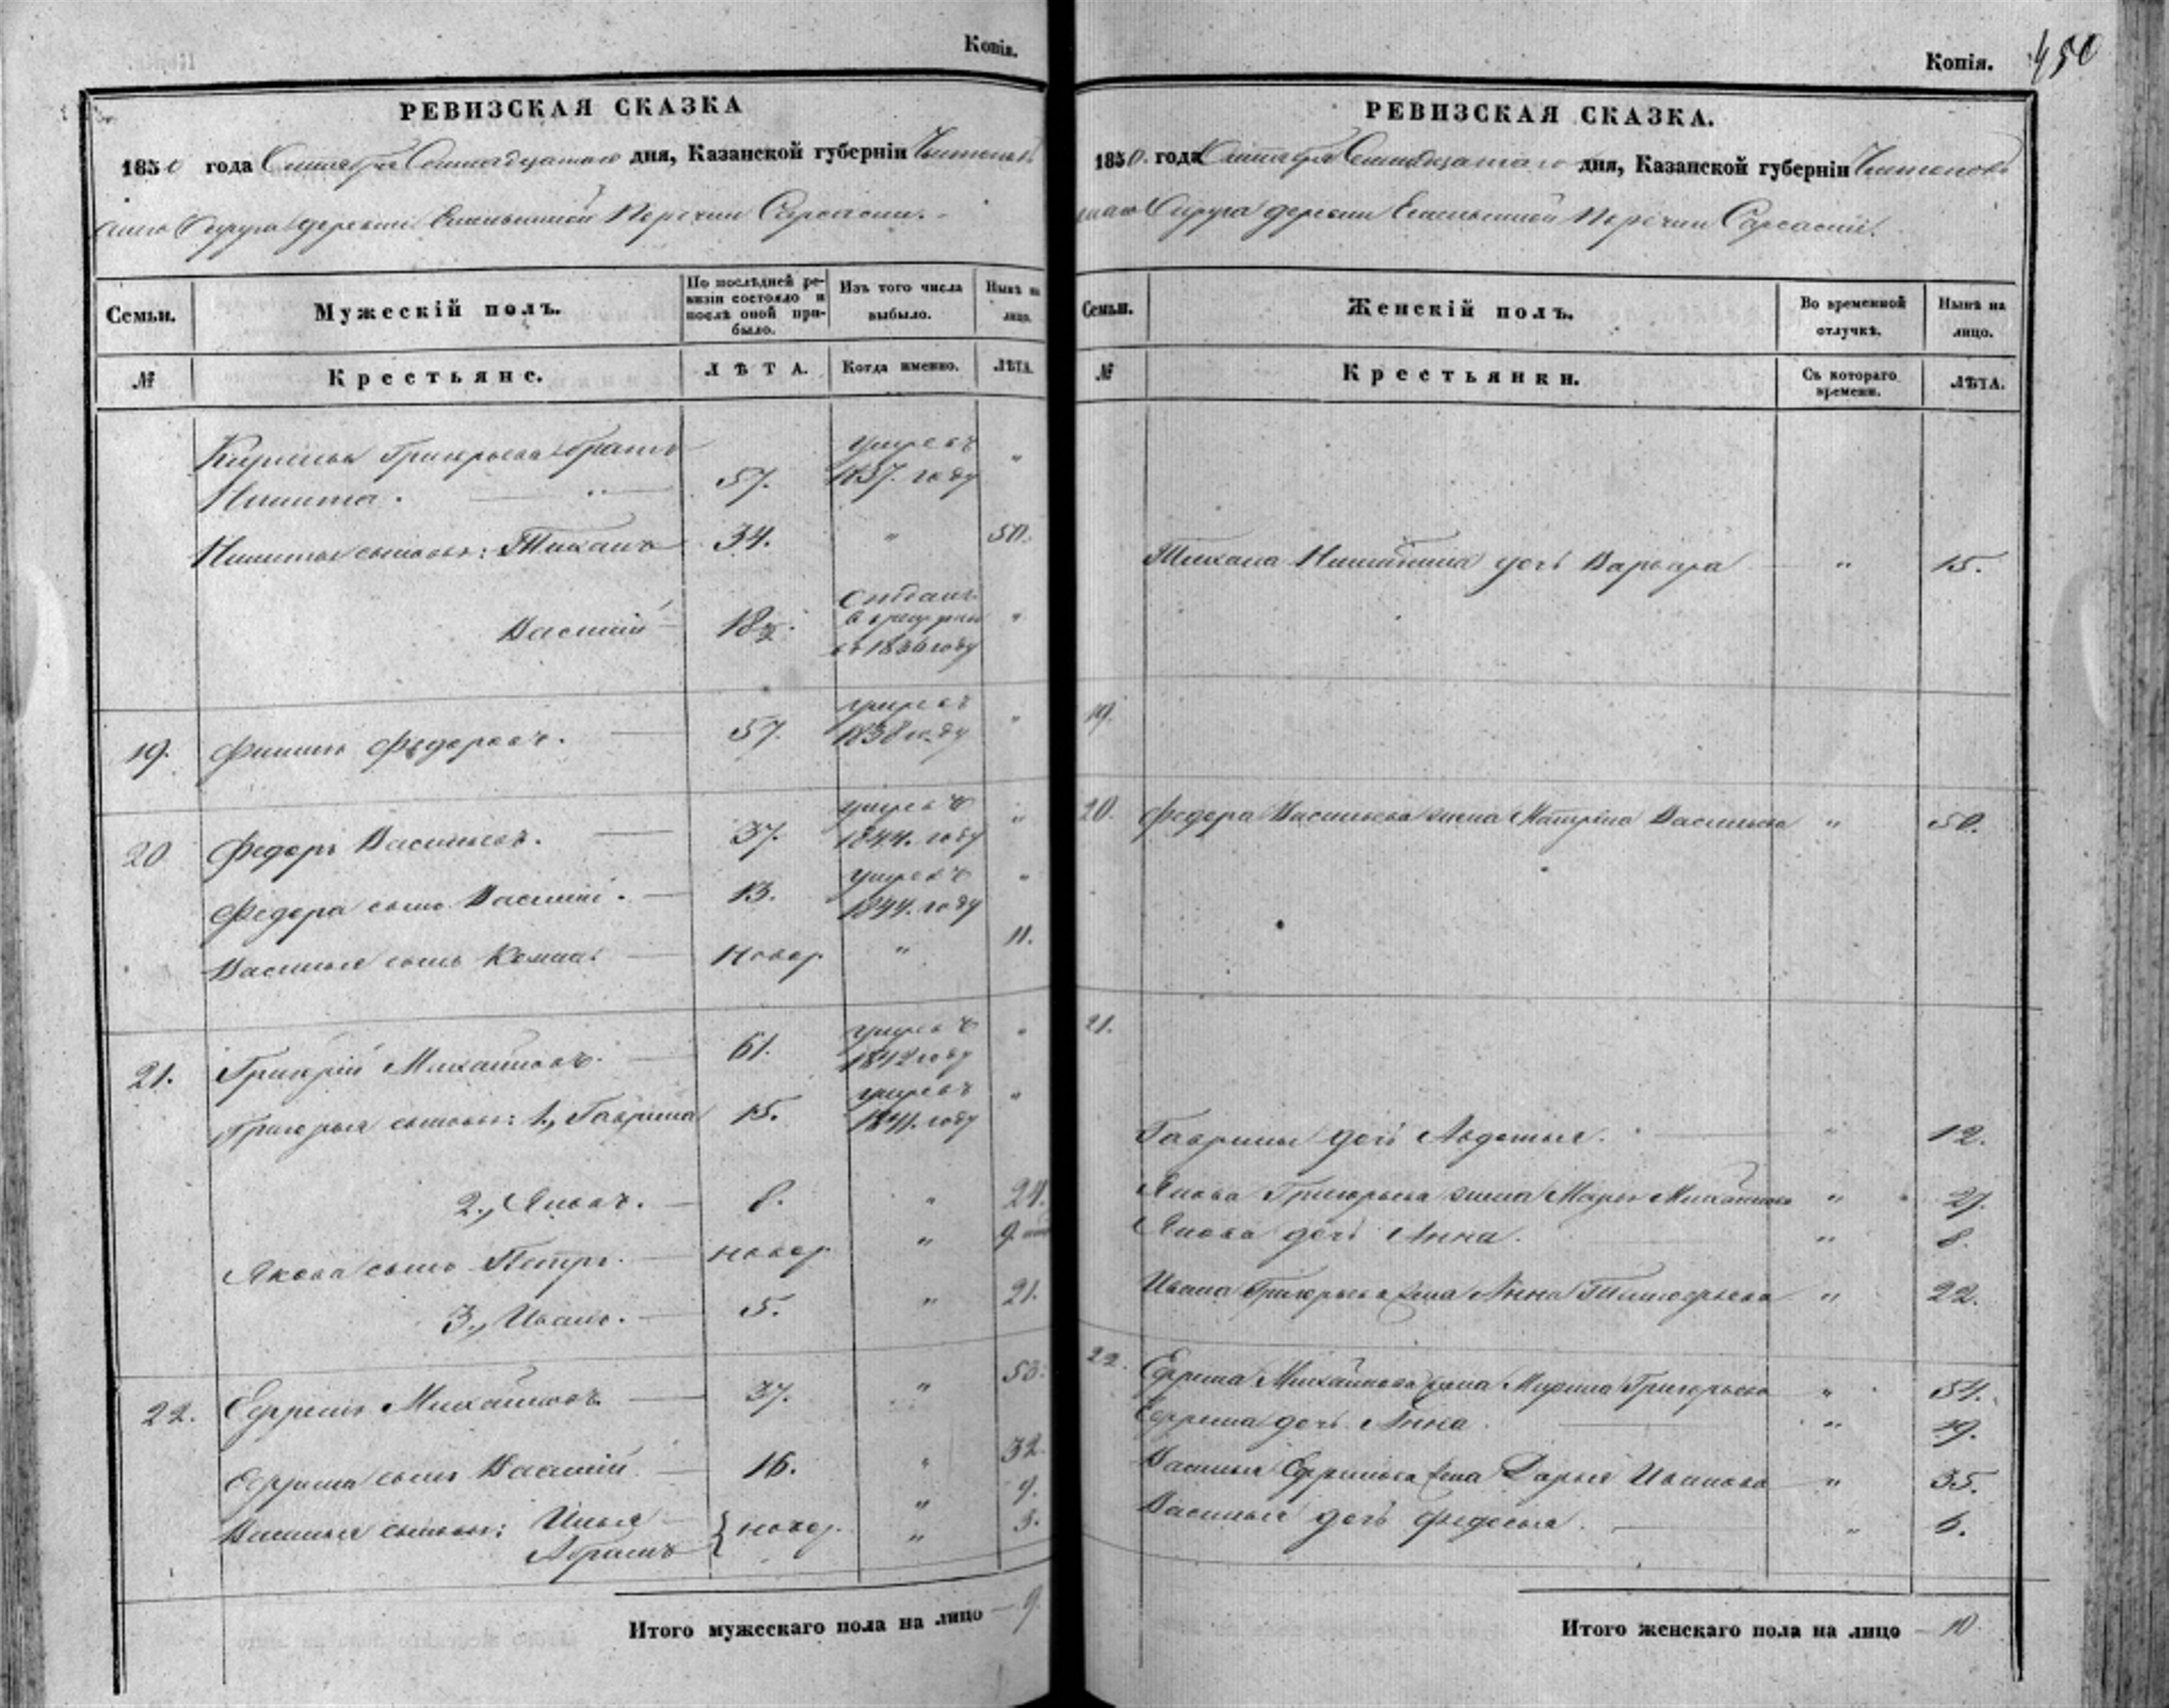 Копія.
РЕВИЗСКАЯ СКАЗКА
1850 года Сентября Семнадцатаго дня, Казанской губерніи Чистополь
скаго Округа деревни Емельkиной
Семьи.
Мужескій полъ.
По послѣдней ре-
визіи состояло и
послѣ оной при-
было.
Изъ того числа
выбыло.
Нынѣ на
лицо.
№
Крестьяне.
ЛѢТА.
Когда именно.
ЛѢТА.
Кирилы Григорьева братъ
умре въ
Никита. 57. 1837. году "
Никиты сыновья: Тиханъ 34. " 50.
Отданъ
Василій 18½. в рекруты "
въ 1836 году
умре въ
19. Филипъ Федоровъ. 57. 1838 году "
умре въ
20 Федоръ Васильевъ. 37. 1844. году "
умре въ
Федора сынъ Василій. 13. 1844. году "
Василья сынъ новор. " 11.
умре въ
21. Григорій Михайловъ. 61. 1842 году "
умре въ
Григорья сыновья: 1., Гаврила 15. 1841. году "
2., Яковъ. 8. " 24.
Якова сынъ Петръ. новор. " 9.
3., Иванъ. 5. " 21.
22. Ефремъ Михайловъ 37. " 53.
Ефрема сынъ Василій 16. " 32.
Василья сыновья: Илья } новор. " 9.
Абрамъ " 3.
Итого мужескаго пола на лицо 9.
Копія. 450
РЕВИЗСКАЯ СКАЗКА.
1850. года Сентября Семнадцатаго дня, Казанской губерніи Чистополь
скаго Округа деревни
Семьи.
Женскій полъ.
Во временной
отлучкѣ.
Нынѣ на
лицо.
№
Крестьянки.
Съ котораго
времени.
ЛѢТА.
Тихана Никитина дочь Варвара " 15.
19.
20. Федора Васильева жена Матрена Васильева " 50.
21.
Гаврилы дочь Авдотья. " 12.
Якова Григорьева жена Марья Михайлова " 27.
Якова дочь Анна. " 8.
Ивана Григорьева жена Анна Тимофеева " 22.
22. Ефрема Михайлова жена Марина Григорьева " 54.
Ефрема дочь Анна " 19.
Василья Ефремова жена Дарья Иванова " 35.
Василья дочь Федосья. " 6.
Итого женскаго пола на лицо 10.